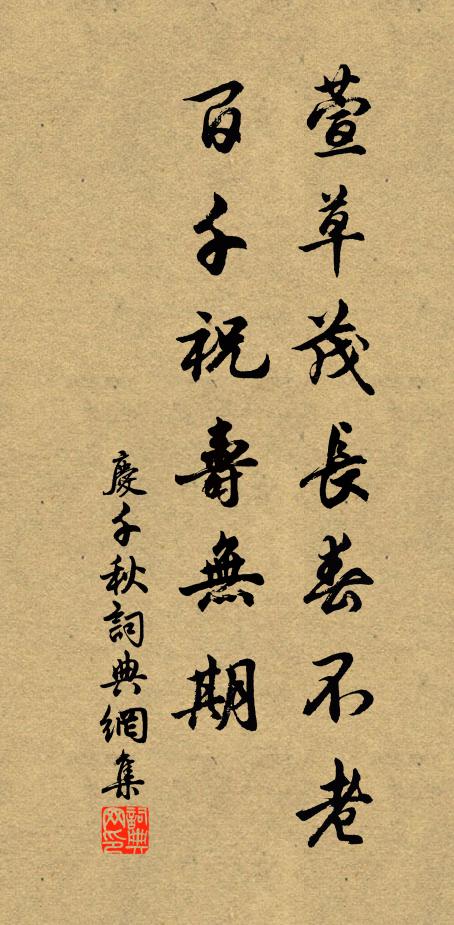 萱草茂長春不老
百千祝壽無期
慶千秋詞典網集
詞典网印